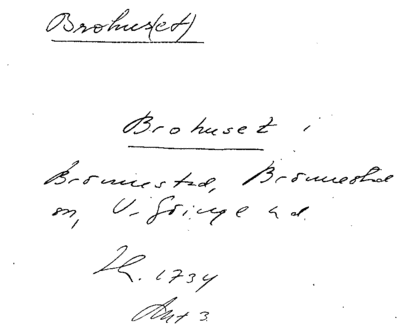 Brohus(et)
Brohuset i
Brönnestad, Brönnestad
sn, V. Göinge hd.
Jb. 1734
Ant 3.